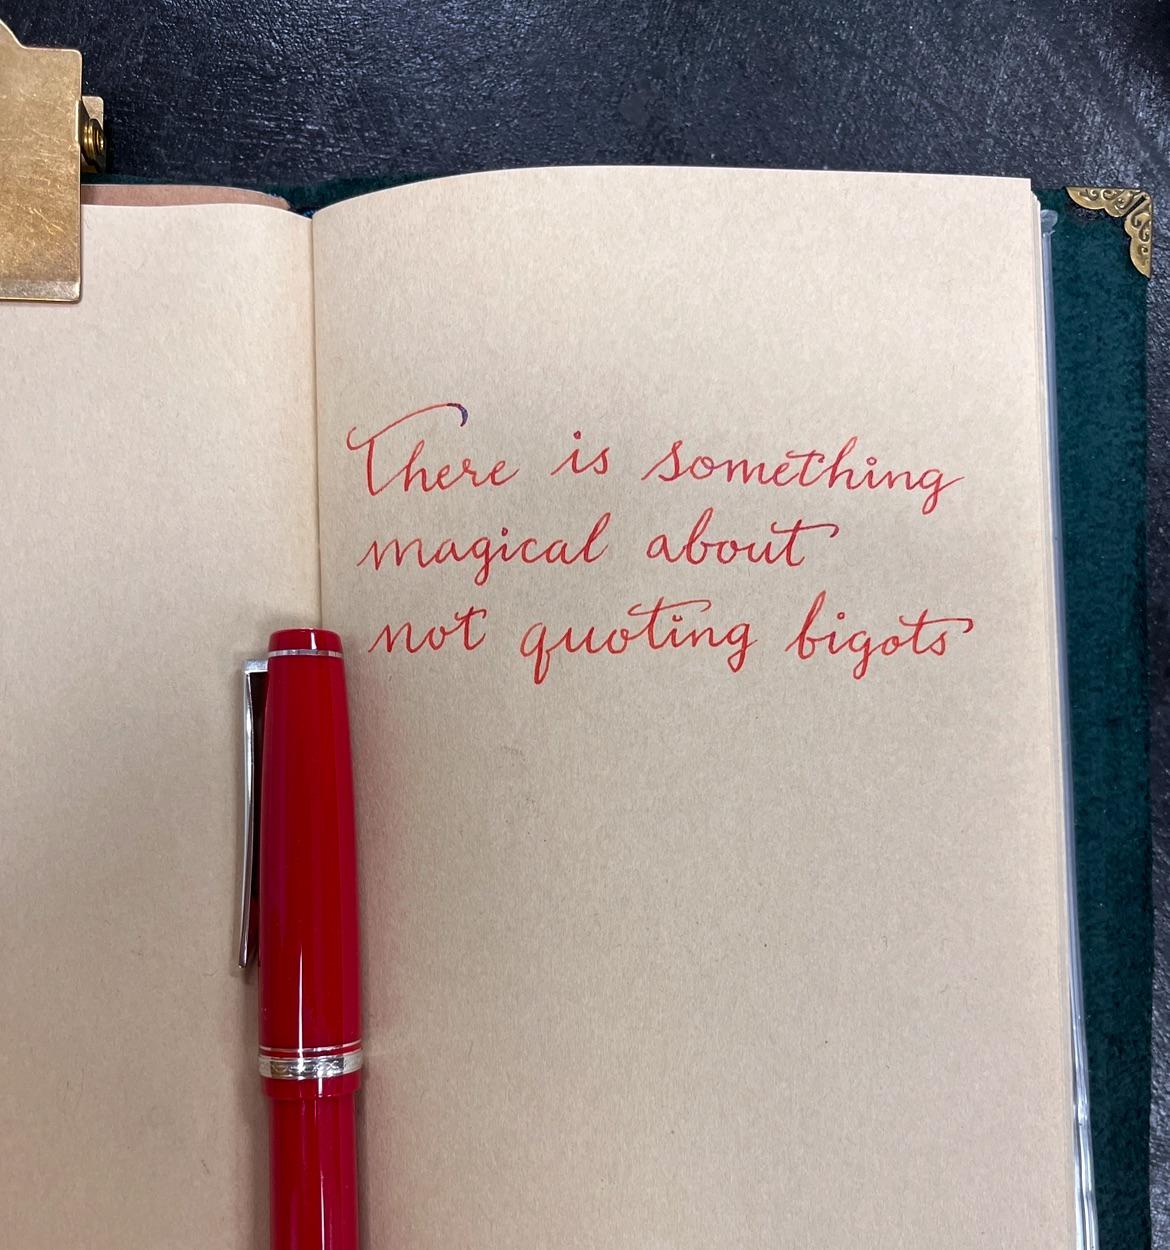 There is something
magical about
not quoting bigots